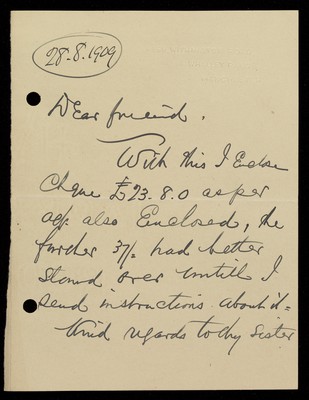 28.8.1909
Dear friend.
With this I Enclose
Cheque £23.8.0 as per
a/c. also Enclosed, the
further 37/= had better
stand over untill I
send instructions about it =
Kind regards to thy Sister